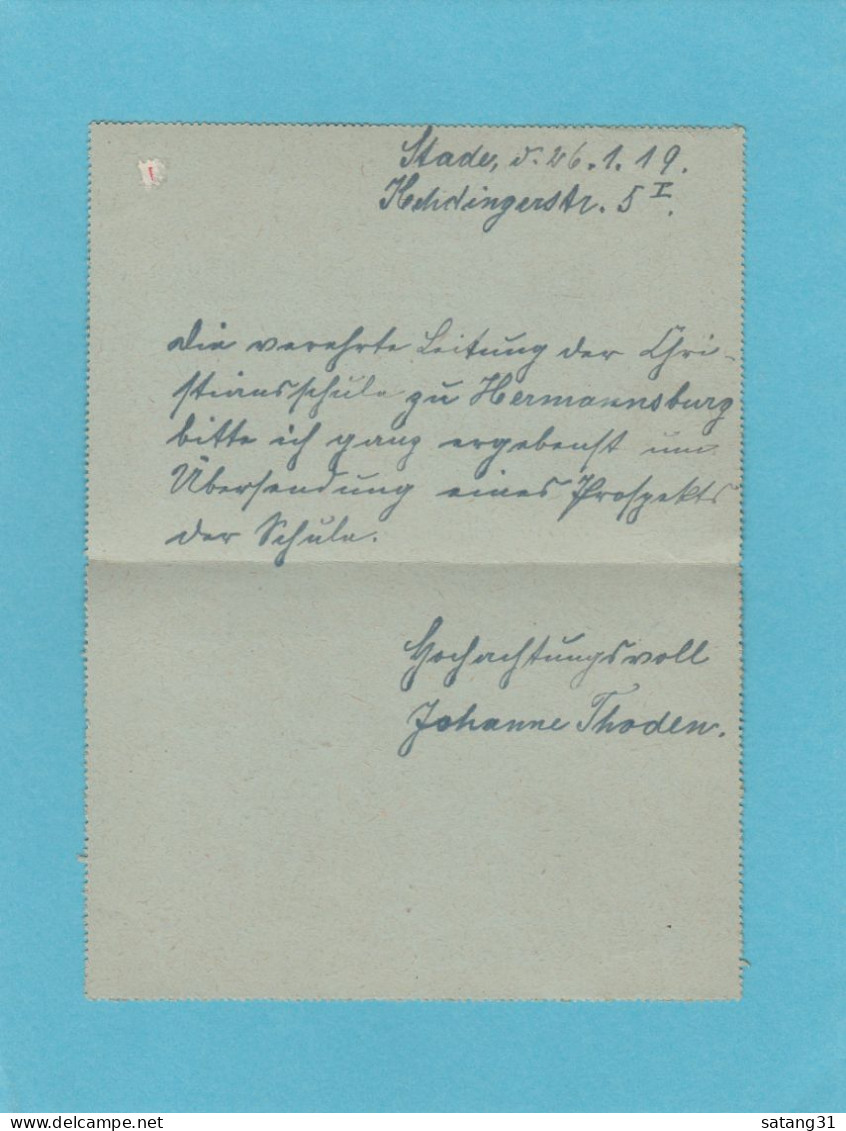 Stade, d. 26.1.19.
Kehdingerstr. 5 I.
Die verehrte Leitung der Chri-
stiansschule zu Hermannsburg
bitte ich ganz ergebenst um
Übersendung eines Prospekts
der Schule.
Hochachtungsvoll
Johanne Thoden.
satang31